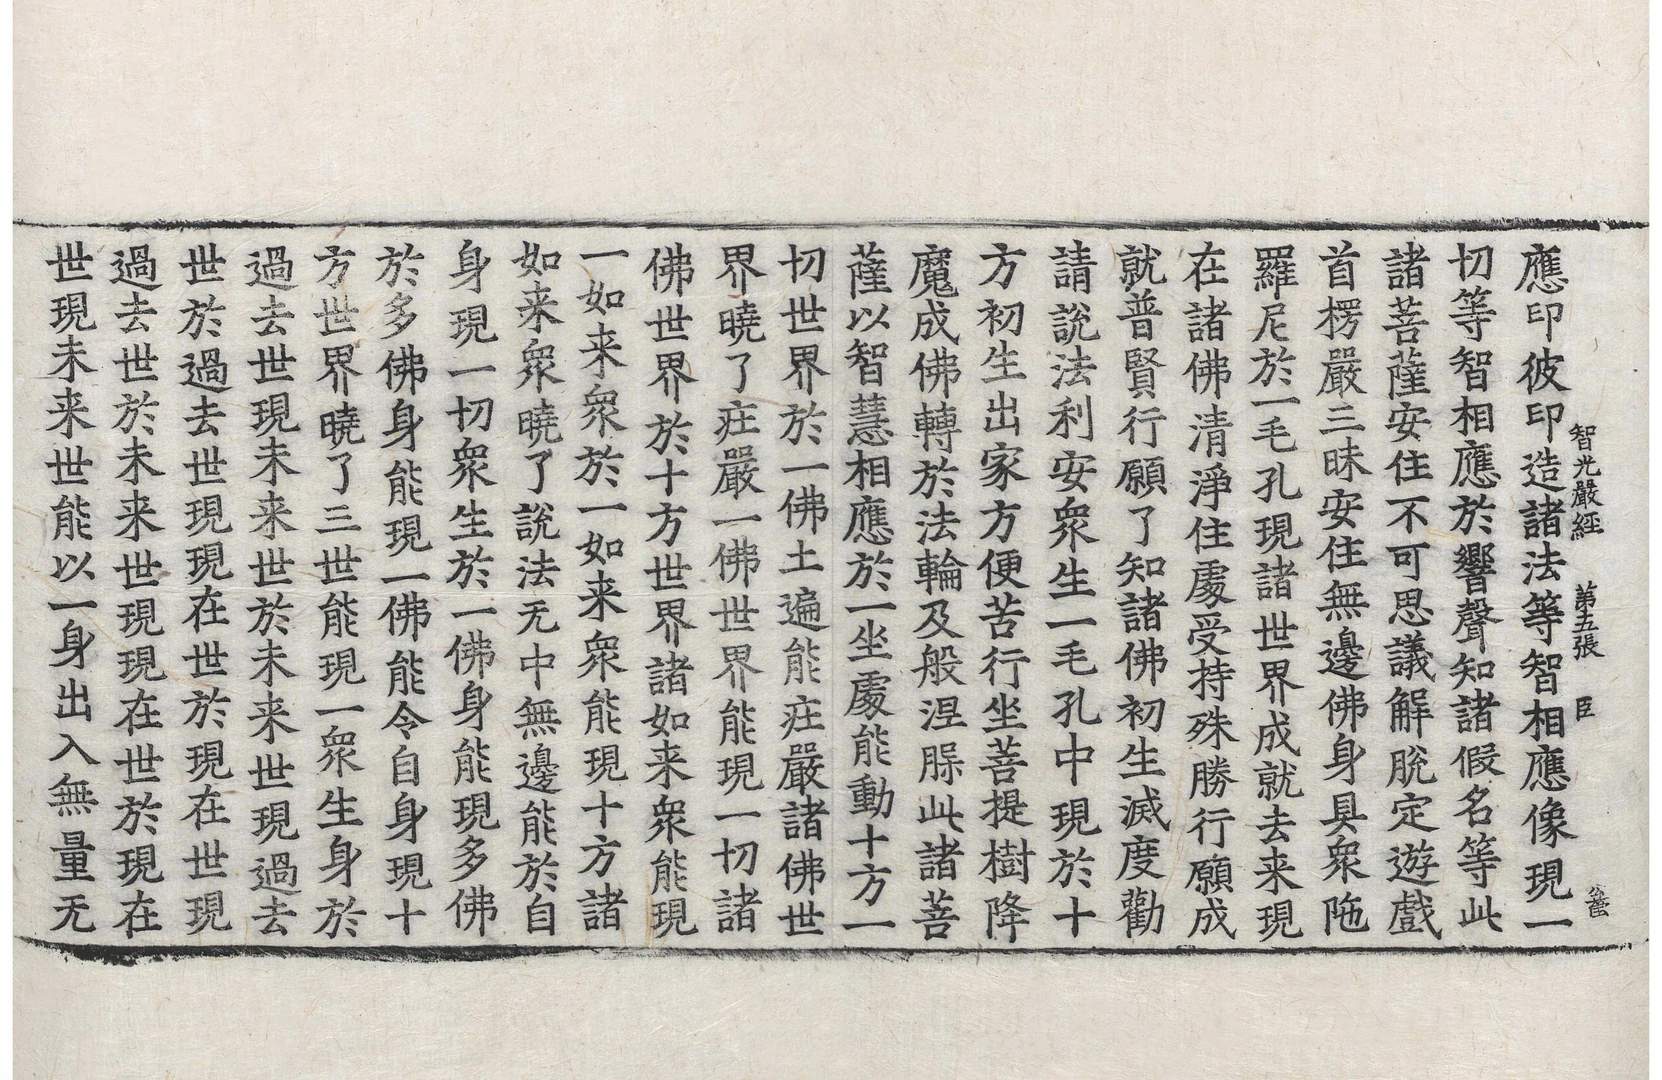 智光嚴經　第五張　臣
應印彼印造諸法等智相應像現一
切等智相應於響聲知諸假名等此
諸菩薩安住不可思議解脫定遊戲
首楞嚴三昧安住無邊佛身具衆陁
羅尼於一毛孔現諸世界成就去来現
在諸佛清淨住處受持殊勝行願成
就普賢行願了知諸佛初生滅度勸
請說法利安衆生一毛孔中現於十
方初生出家方便苦行坐菩提樹降
魔成佛轉於法輪及般涅𦙝此諸菩
薩以智慧相應於一坐處能動十方一
切世界於一佛土遍能庄嚴諸佛世
界曉了庄嚴一佛世界能現一切諸
佛世界於十方世界諸如来衆能現
一如来衆於一如来衆能現十方諸
如来衆曉了說法无中無邊能於自
身現一切衆生於一佛身能現多佛
於多佛身能現一佛能令自身現十
方世界曉了三世能現一衆生身於
過去世現未来世於未来世現過去
世於過去世現現在世於現在世現
過去世於未来世現現在世於現在
世現未来世能以一身出入無量无